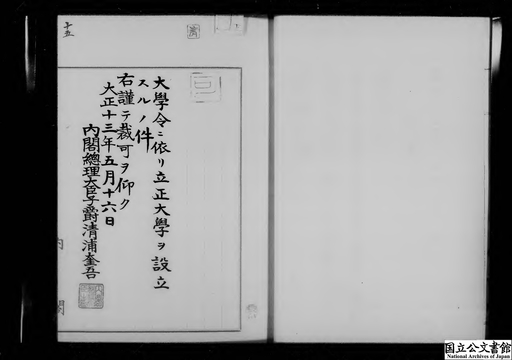 大學令ニ依リ立正大學ヲ設立
スルノ件
右謹テ裁可ヲ仰ク
大正十三年五月十六日
內閣總理大臣子爵清浦奎吾
內
閣
十五
国立公文書館
National Archives of Japan